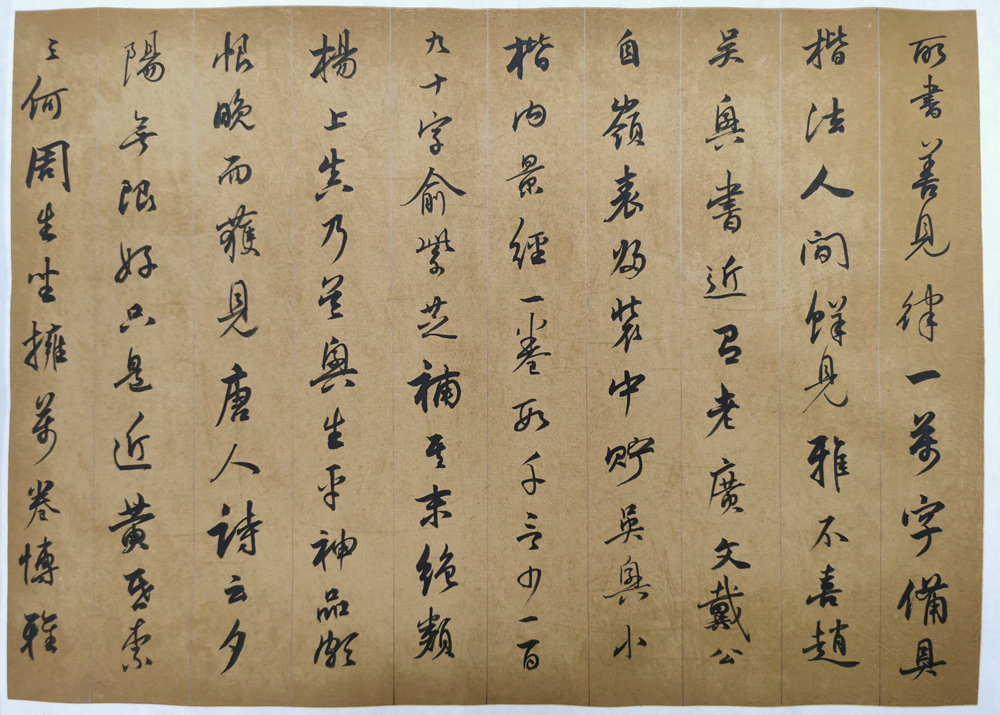 所書善見律一萬字備具
楷法人間鮮見雅不喜趙
吳興書近呂老廣文戴公
自嶺表歸裝中貯吳興小
楷內景經一卷取千言少一百
九十字俞紫芝補其末絕類
楊上真乃吳興生平神品頗
恨晚而獲見唐人詩云夕
陽無限好只是近黃昏索
之何周生坐擁萬卷博雅